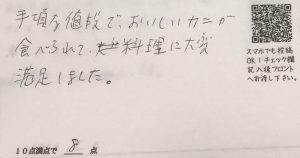 手頃な値段で、おいしいカニが
食べられて、料理に大変
満足しました。
スマホでも投稿
OK！チェック欄
記入後フロント
へお渡し下さい。
10点満点で 8 点